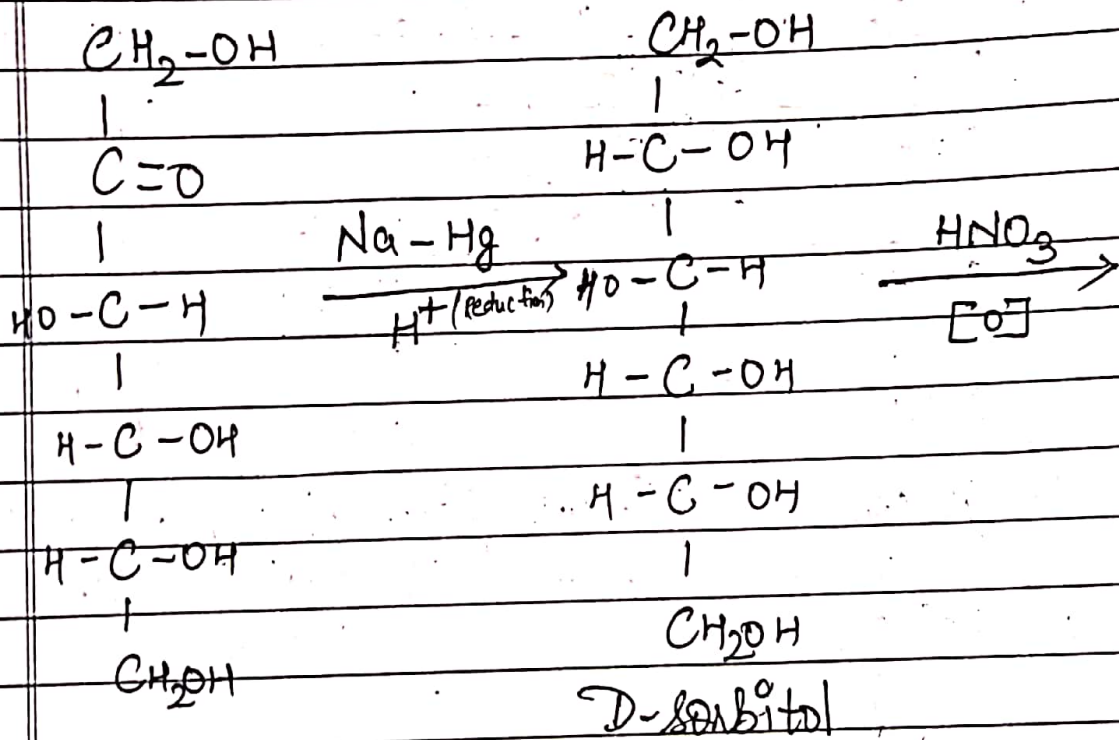 CH2-OH
|
C=O
|
HO-C-H
|
H-C-OH
|
H-C-OH
|
CH2OH
Na-Hg
H+ (Reduction)
CH2-OH
|
H-C-OH
|
HO-C-H
|
H-C-OH
|
H-C-OH
|
CH2OH
D-sorbitol
HNO3
[O]